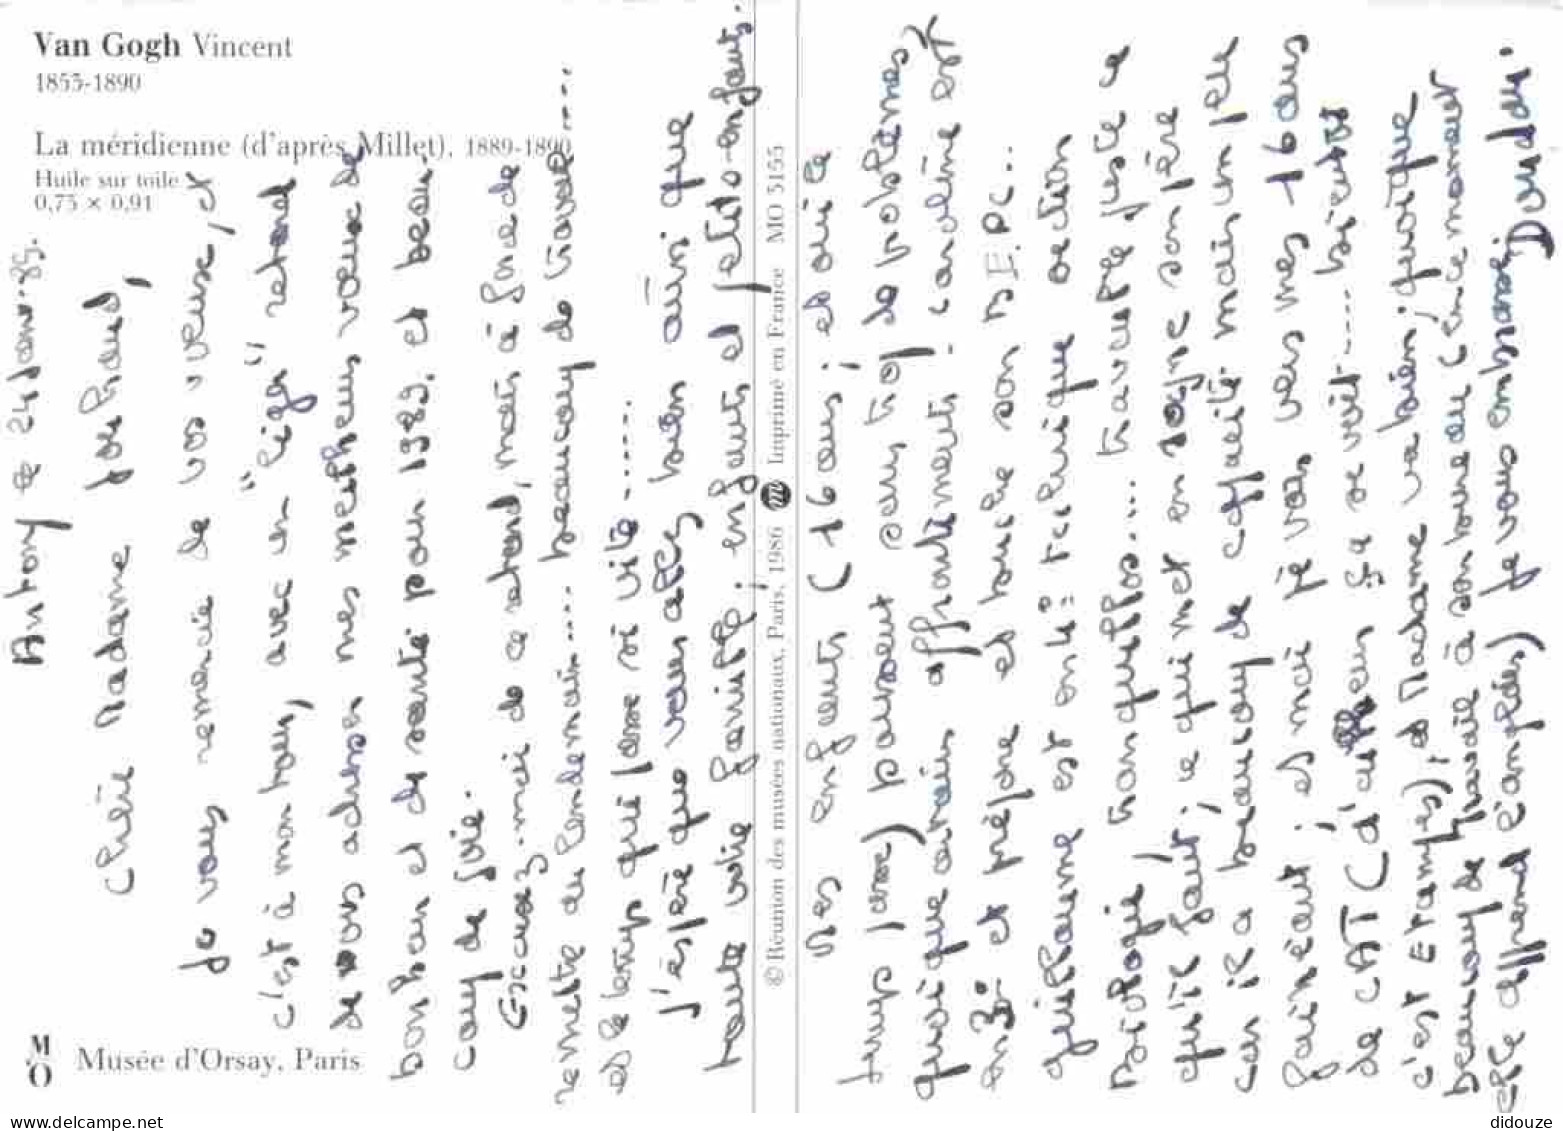 Van Gogh Vincent
1853-1890
La méridienne (d'après Millet), 1889-1890
Huile sur toile
0,73 × 0,91
M
O
Musée d'Orsay, Paris
© Réunion des musées nationaux, Paris, 1986 Imprimé en France MO 5155
Antony le 24 Janv. 89.
Chère Madame
Je vous remercie de vos vœux, et
c'est à mon tour, avec un "léger" retard
de vous adresser mes meilleurs vœux de
bonheur et de santé pour 1989. et beau-
coup de joie.
Excusez-moi de ce retard, mais à force de
remettre au lendemain.... beaucoup de travail....
et le temps qui passe si vite.....
J'espère que vous allez bien ainsi que
toute votre famille ; enfants et petits-enfants.
Mes enfants (16 ans ; et oui le
temps passe) poussent sans trop de problèmes,
quoique certains affrontements ; caroline est
en 3° et prépare et bûche son B.E.P.C...
guillaume est en 1ère technique section
Biologie, tranquillos.... travaille juste ce
qu'il faut ; ce qui met en rogne son père
car il a beaucoup de capacité mais un peu
fainéant ; et moi je vais vers mes 16 ans
de CAT (d'ailleurs ça se voit.... bientôt
c'est Etampes), et Madame va bien ; quoique
beaucoup de travail à son bureau (en ce moment
elle apprend l'anglais) Je vous embrasse, Doudou.
didouze
www.delcampe.net